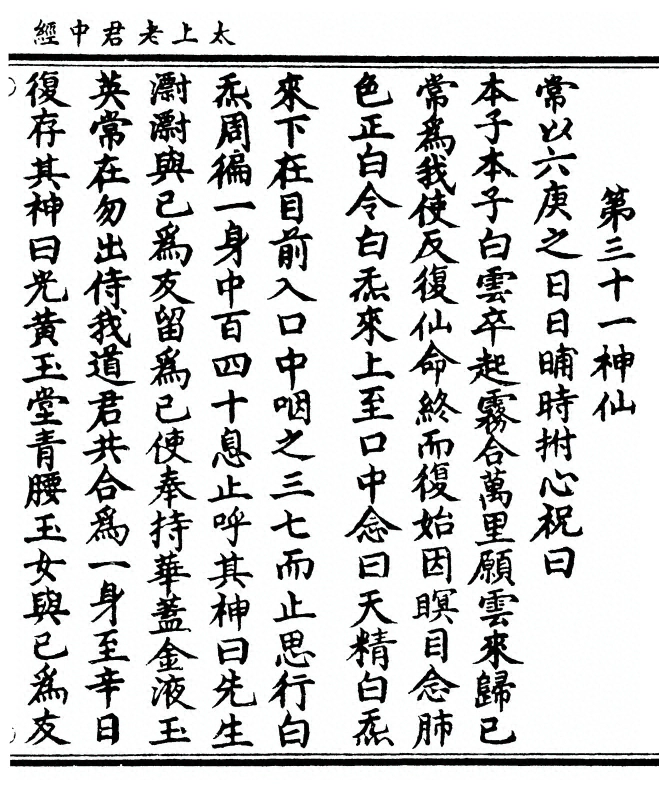 太上老君中經
第三十一神仙
常以六庚之日日晡時拊心祝曰
本子本子白雲卒起霧合萬里願雲來歸已
常爲我使反復仙命終而復始因瞑目念肺
色正白令白炁來上至口中念曰天精白炁
來下在目前入口中咽之三七而止思行白
炁周徧一身中百四十息止呼其神曰先生
㶉㶉與已爲友留爲已使奉持華蓋金液玉
英常在勿出侍我道君共合爲一身至辛日
復存其神曰光黃玉堂青腰玉女與已爲友